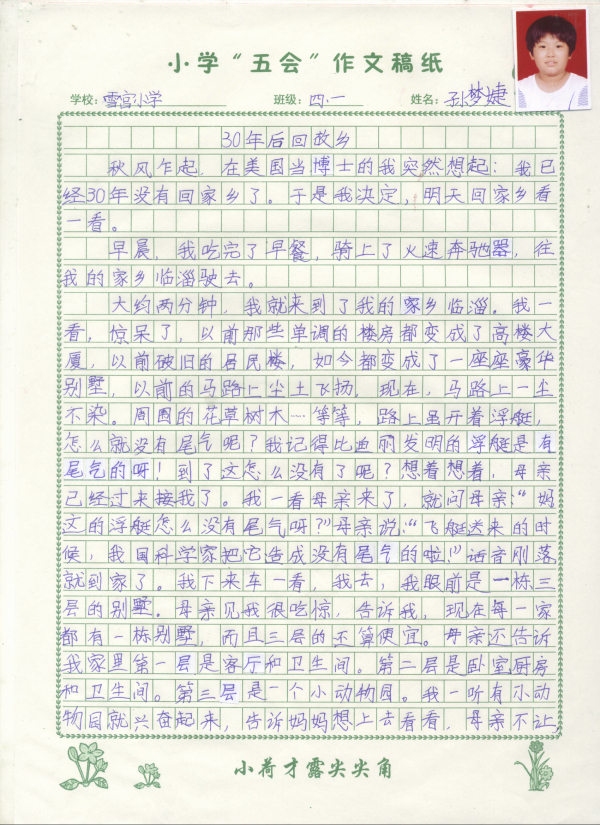 小学“五会”作文稿纸
学校：雪宫小学 班级：四·一 姓名：孙梦婕
30年后回故乡
秋风乍起，在美国当博士的我突然想起：我已
经30年没有回家乡了。于是我决定，明天回家乡看
一看。
早晨，我吃完了早餐，骑上了火速奔驰器，往
我的家乡临淄驶去。
大约两分钟，我就来到了我的家乡临淄。我一
看，惊呆了，以前那些单调的楼房都变成了高楼大
厦，以前破旧的居民楼，如今都变成了一座座豪华
别墅，以前的马路上尘土飞扬，现在，马路上一尘
不染。周围的花草树木…等等，路上虽开着浮艇，
怎么就没有尾气呢？我记得比血丽发明的浮艇是有
尾气的呀！到了这怎么没有了呢？想着想着，母亲
已经过来接我了。我一看母亲来了，就问母亲：“妈
这的浮艇怎么没有尾气呀？”母亲说：“飞艇送来的时
候，我国科学家把它造成没有尾气的啦！”话音刚落
就到家了。我下来车一看，我去，我眼前是一栋三
层的别墅。母亲见我很吃惊，告诉我，现在每一家
都有一栋别墅，而且三层的还算便宜。母亲还告诉
我家里第一层是客厅和卫生间。第二层是卧室厨房
和卫生间。第三层是一个小动物园。我一听有小动
物园就兴奋起来，告诉妈妈想上去看看，母亲不让，
小荷才露尖尖角